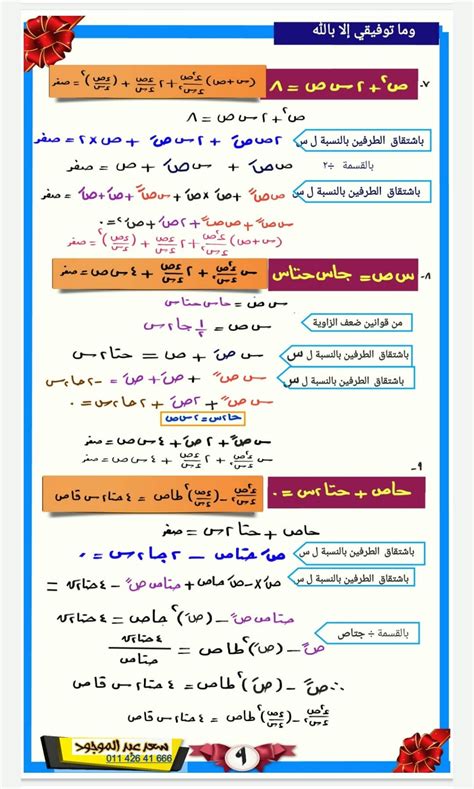 وما توفيقي إلا بالله
٧- ص٢ + ٢ س ص = ٨ (س+ص) ء٢ص/ءس٢ + ٢ ءص/ءس + (ءص/ءس)٢ = صفر
ص٢ + ٢ س ص = ٨
باشتقاق الطرفين بالنسبة ل س ٢ص صَ + ٢ س صَ + ص × ٢ = صفر
بالقسمة ÷ ٢ ص صَ + س صَ + ص = صفر
باشتقاق الطرفين بالنسبة ل س ص صً + صَ × صَ + س صً + صَ + صَ = صفر
س صً + ص صً + ٢ صَ + صَ٢ = ٠
(س+ص) ء٢ص/ءس٢ + ٢ ءص/ءس + (ءص/ءس)٢ = صفر
٨- س ص = جاس حتاس س ء٢ص/ءس٢ + ٢ ءص/ءس + ٤ س ص = صفر
س ص = حاس حتاس
من قوانين ضعف الزاوية س ص = ١/٢ جا٢س
باشتقاق الطرفين بالنسبة ل س س صَ + ص = حتا٢س
باشتقاق الطرفين بالنسبة ل س س صً + صَ + صَ = -٢ حا٢س
س صً + ٢صَ + ٢ حا٢س = ٠
حا٢س = ٢ س ص
س صً + ٢ صَ + ٤ س ص = صفر
س ء٢ص/ءس٢ + ٢ ءص/ءس + ٤ س ص = صفر
٩-
حاص + حتا٢س = ٠ ء٢ص/ءس٢ - (ءص/ءس)٢ طاص = ٤ حتا٢س قاص
حاص + حتا٢س = صفر
باشتقاق الطرفين بالنسبة ل س صَ حتاص - ٢ جا٢س = ٠
باشتقاق الطرفين بالنسبة ل س صَ × - صَ حاص + حتاص صً - ٤ حتا٢س = ٠
حتاص صً - (صَ)٢ جاص = ٤ حتا٢س
بالقسمة ÷ جتاص صً - (صَ)٢ طاص = ٤ حتا٢س/حتاص
∴ صً - (صَ)٢ طاص = ٤ حتا٢س قاص
ء٢ص/ءس٢ - (ءص/ءس)٢ طاص = ٤ حتا٢س قاص
سعد عبد الموجود
011 426 41 666
٩